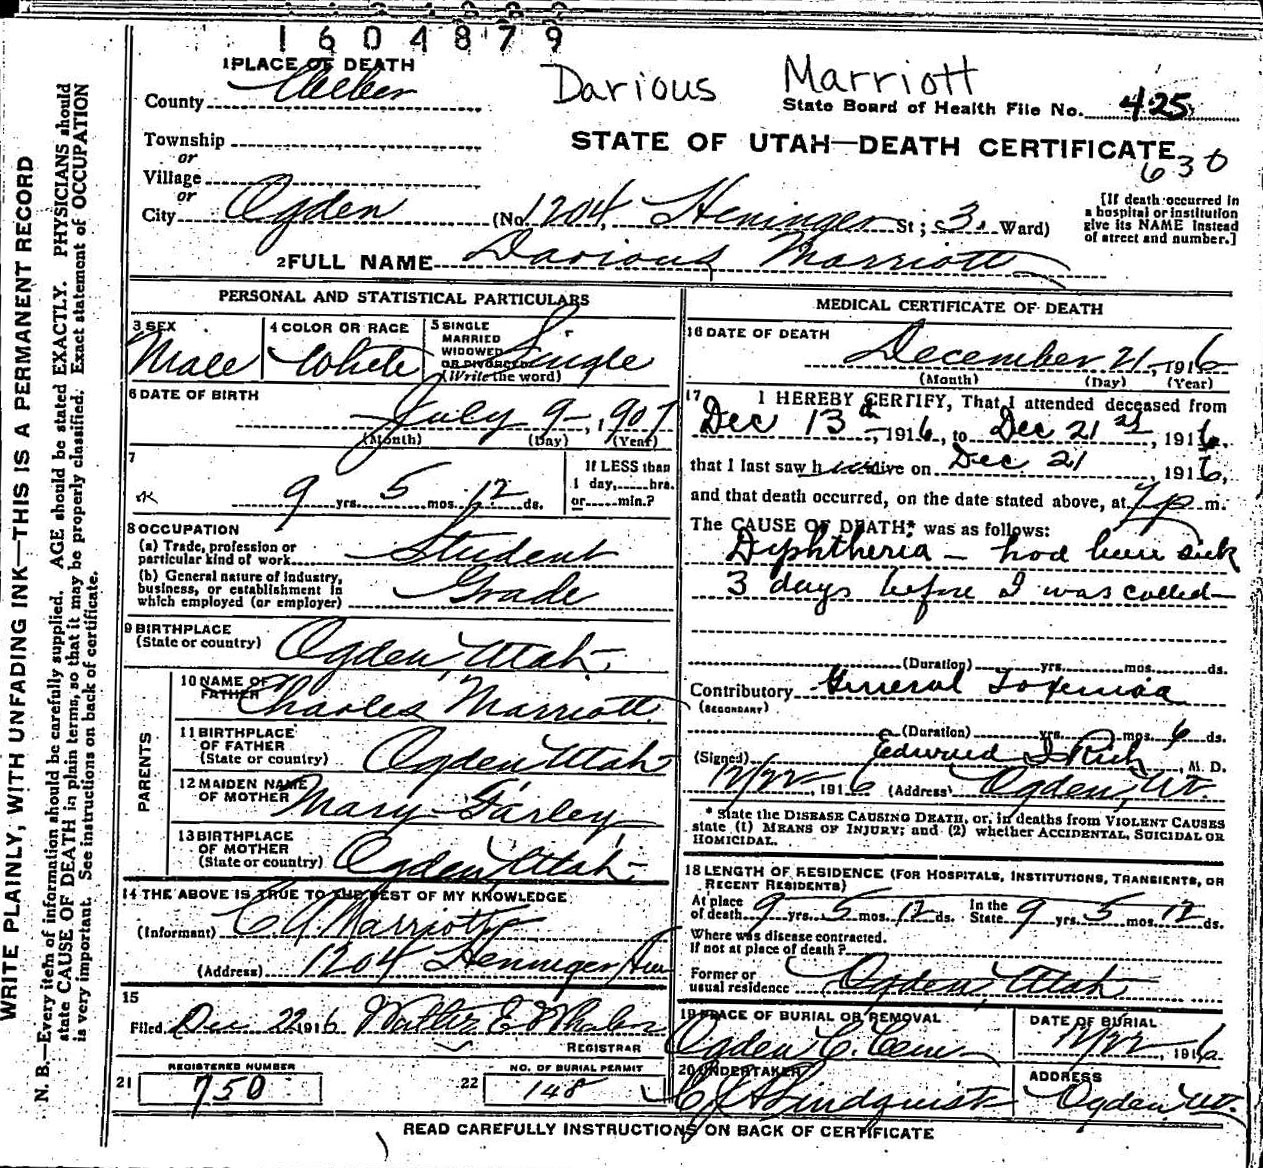 1604879
1 PLACE OF DEATH
Darious Marriott
County Weber
State Board of Health File No. 425
Township
or
STATE OF UTAH—DEATH CERTIFICATE
630
Village
or
City Ogden (No. 1204, Heninger St; 3. Ward)
[If death occurred in
a hospital or institution
give its NAME instead
of street and number.]
2 FULL NAME Darious Marriott
PERSONAL AND STATISTICAL PARTICULARS
3 SEX
Male
4 COLOR OR RACE
White
5 SINGLE
MARRIED
WIDOWED
OR DIVORCED
(Write the word)
Single
6 DATE OF BIRTH
July 9, 1907
(Month) (Day) (Year)
7
9 yrs. 5 mos. 12 ds.
If LESS than
1 day, hrs.
or min.?
8 OCCUPATION
(a) Trade, profession or
particular kind of work Student
(b) General nature of industry,
business, or establishment in
which employed (or employer) Grade
9 BIRTHPLACE
(State or country) Ogden, Utah
PARENTS
10 NAME OF
FATHER
Charles Marriott
11 BIRTHPLACE
OF FATHER
(State or country) Ogden Utah
12 MAIDEN NAME
OF MOTHER Mary Farley
13 BIRTHPLACE
OF MOTHER
(State or country) Ogden, Utah
14 THE ABOVE IS TRUE TO THE BEST OF MY KNOWLEDGE
(Informant) C A Marriott
(Address) 1204 Henniger Ave
15
Filed Dec 22 1916 Walter E
REGISTRAR
REGISTERED NUMBER
21 750
NO. OF BURIAL PERMIT
22 148
MEDICAL CERTIFICATE OF DEATH
16 DATE OF DEATH
December 21, 1916
(Month) (Day) (Year)
17 I HEREBY CERTIFY, That I attended deceased from
Dec 13th, 1916, to Dec 21st, 1916.
that I last saw him alive on Dec 21 1916,
and that death occurred, on the date stated above, at 7 p m.
The CAUSE OF DEATH* was as follows:
Dyphtheria — had been sick
3 days before I was called—
(Duration) yrs. mos. ds.
Contributory General Toxemia
(SECONDARY)
(Duration) yrs. mos. 6 ds.
(Signed) Edward I Rich, M. D.
12/22, 1916 (Address) Ogden, Ut.
* State the DISEASE CAUSING DEATH, or, in deaths from VIOLENT CAUSES
state (1) MEANS OF INJURY; and (2) whether ACCIDENTAL, SUICIDAL OR
HOMICIDAL.
18 LENGTH OF RESIDENCE (FOR HOSPITALS, INSTITUTIONS, TRANSIENTS, OR
RECENT RESIDENTS)
At place
of death 9 yrs. 5 mos. 12 ds.
In the
State 9 yrs. 5 mos. 12 ds.
Where was disease contracted.
If not at place of death?
Former or
usual residence Ogden, Utah
19 PLACE OF BURIAL OR REMOVAL
Ogden C. Cem
DATE OF BURIAL
12/22, 1916
20 UNDERTAKER
Lindquist
ADDRESS
Ogden, Ut.
READ CAREFULLY INSTRUCTIONS ON BACK OF CERTIFICATE
WRITE PLAINLY, WITH UNFADING INK—THIS IS A PERMANENT RECORD
N. B.—Every item of information should be carefully supplied. AGE should be stated EXACTLY. PHYSICIANS should
state CAUSE OF DEATH in plain terms, so that it may be properly classified. Exact statement of OCCUPATION
is very important. See instructions on back of certificate.